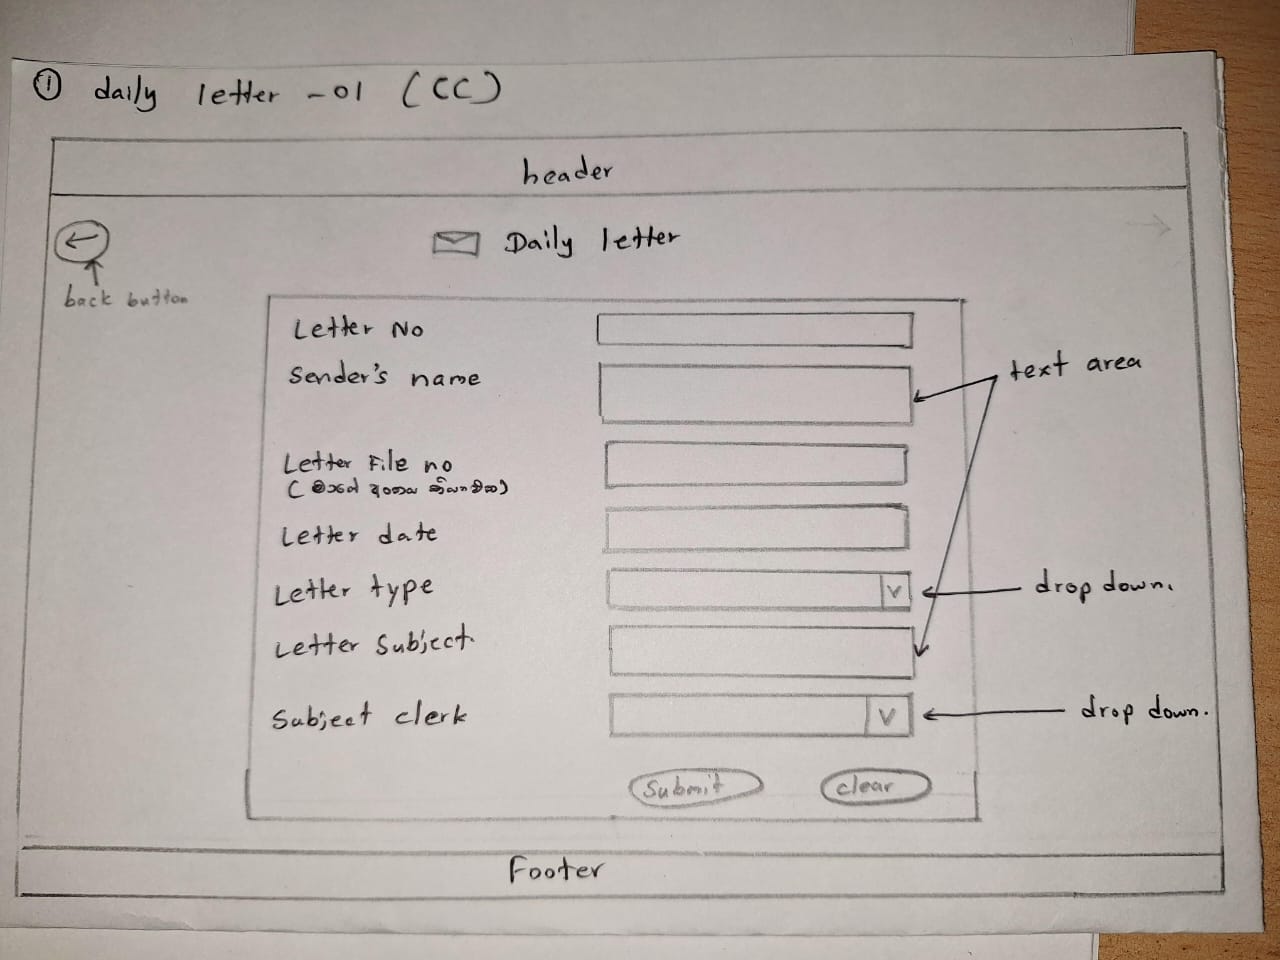 ① daily letter - 01 (CC)
header
←
Daily letter
back button
Letter No
Sender's name
text area
Letter File no
Letter date
Letter type
v
drop down.
Letter Subject.
Subject clerk
v
drop down.
Submit
clear
Footer